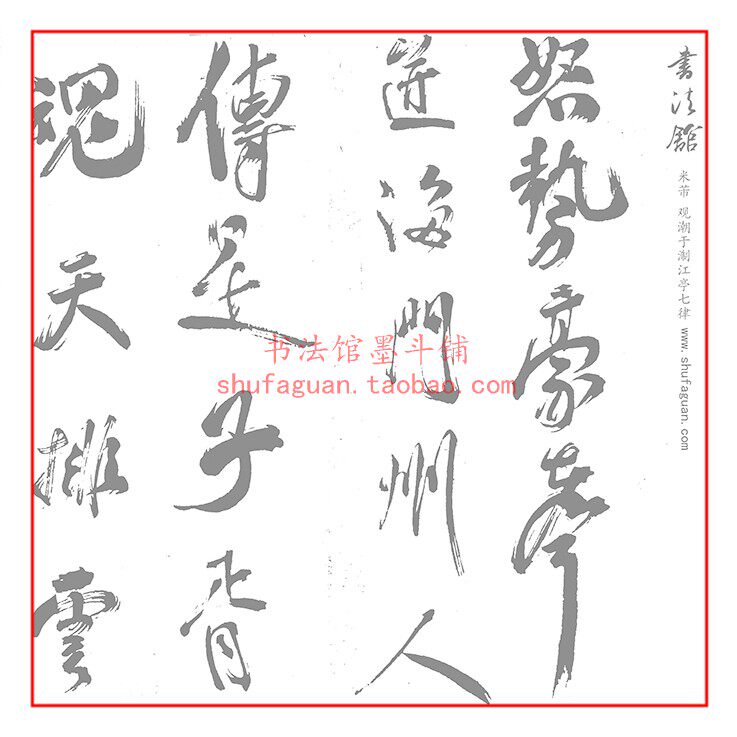 書法館
米芾 观潮于淛江亭七律 www.shufaguan.com
怒勢豪聲
迸海門州人
傳是子胥
魂天排雲
书法馆墨斗铺
shufaguan.taobao.com